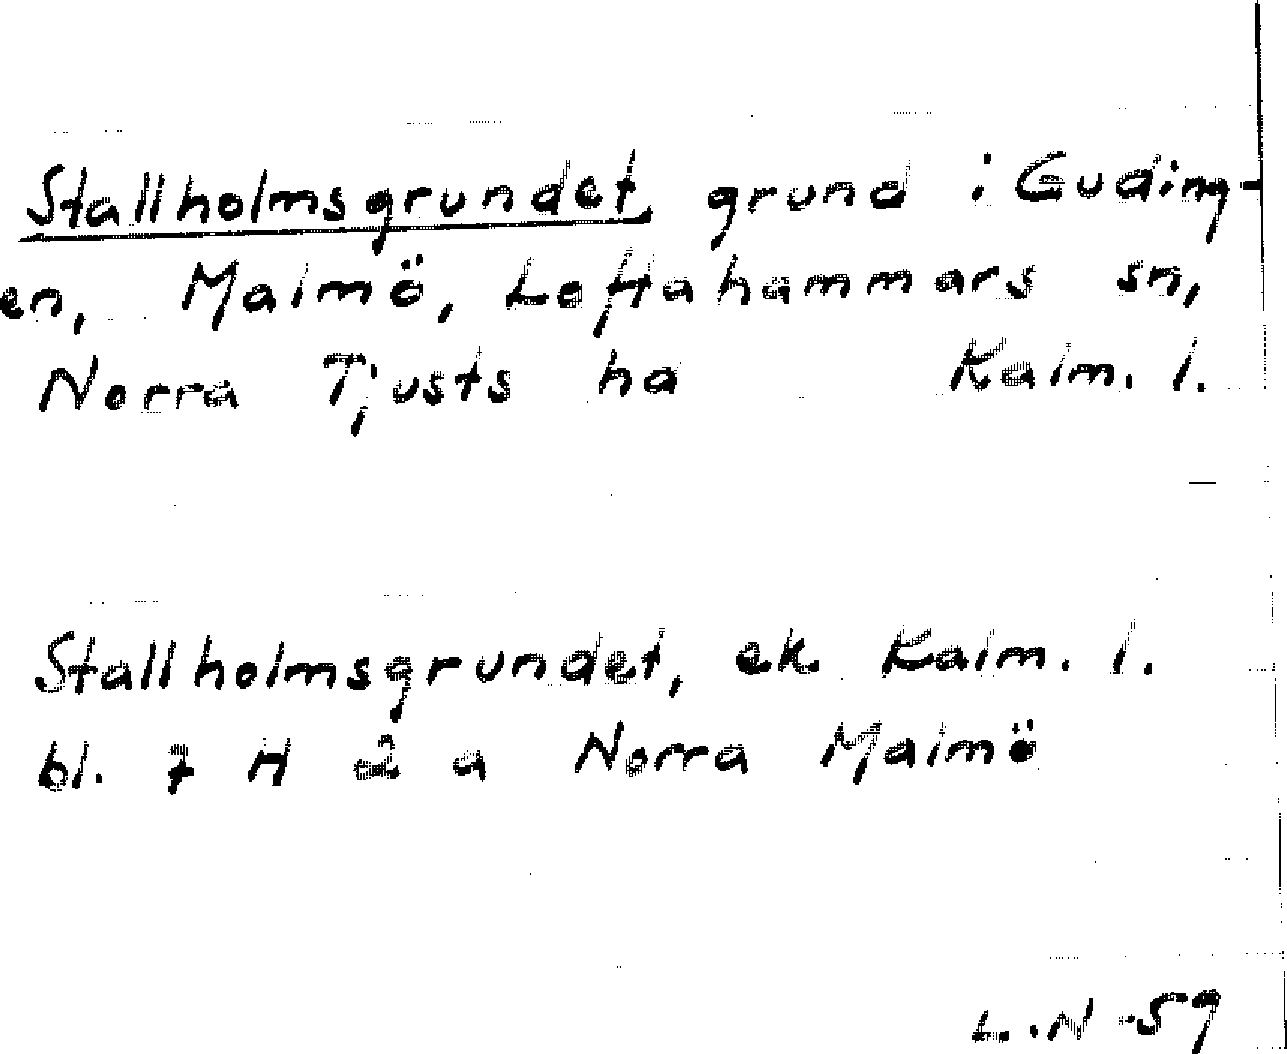 Stallholmsgrundet, grund i Guding-
en, Malmö, Loftahammars sn,
Norra Tjusts hd Kalm. l.
Stallholmsgrundet, ek. Kalm. l.
bl. 7 H 2 a Norra Malmö
L.N -59